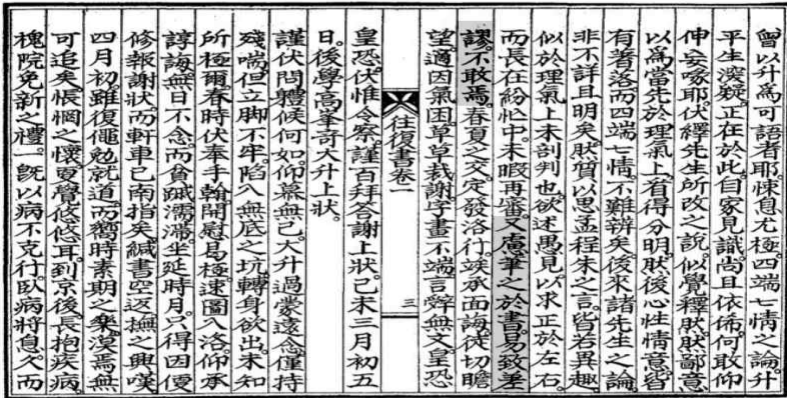 曾以升爲可語者耶悚息尤極四端七情之論升
平生深疑正在於此自家見識尚且依俙何敢仰
伸妄喙耶伏繹先生所改之說似覺釋然然鄙意
以爲當先於理氣上看得分明然後心性情意皆
有着落而四端七情不難辨矣後來諸先生之論
非不詳且明矣然質以思孟程朱之言皆若異趣
似於理氣上未剖判也欲述愚見以求正於左右
而長在紛忙中未暇再審又慮筆之於書易致差
謬不敢焉春夏之交定發洛行竢承面誨徒切瞻
望適因氣困草草裁謝字畫不端言辭無文皇恐
往復書卷一
三
皇恐伏惟令察謹百拜答謝上狀己未三月初五
日後學高峯奇大升上狀
謹伏問軆候何如仰慕無已大升過蒙遠念僅持
殘喘但立脚不牢陷入無底之坑轉身欲出未知
所極爾春時伏奉手翰開慰曷極速圖入洛仰承
諄誨無日不念而貧賤濡滯坐延時月只得因便
修報謝狀而軒車已南指矣緘書空返撫之興嘆
四月初雖復僶勉就道而嚮時素期之樂漠焉無
可追矣悵惘之懷更覺悠悠耳到京後長抱疾病
槐院免新之禮一旣以病不克行臥病將息久而